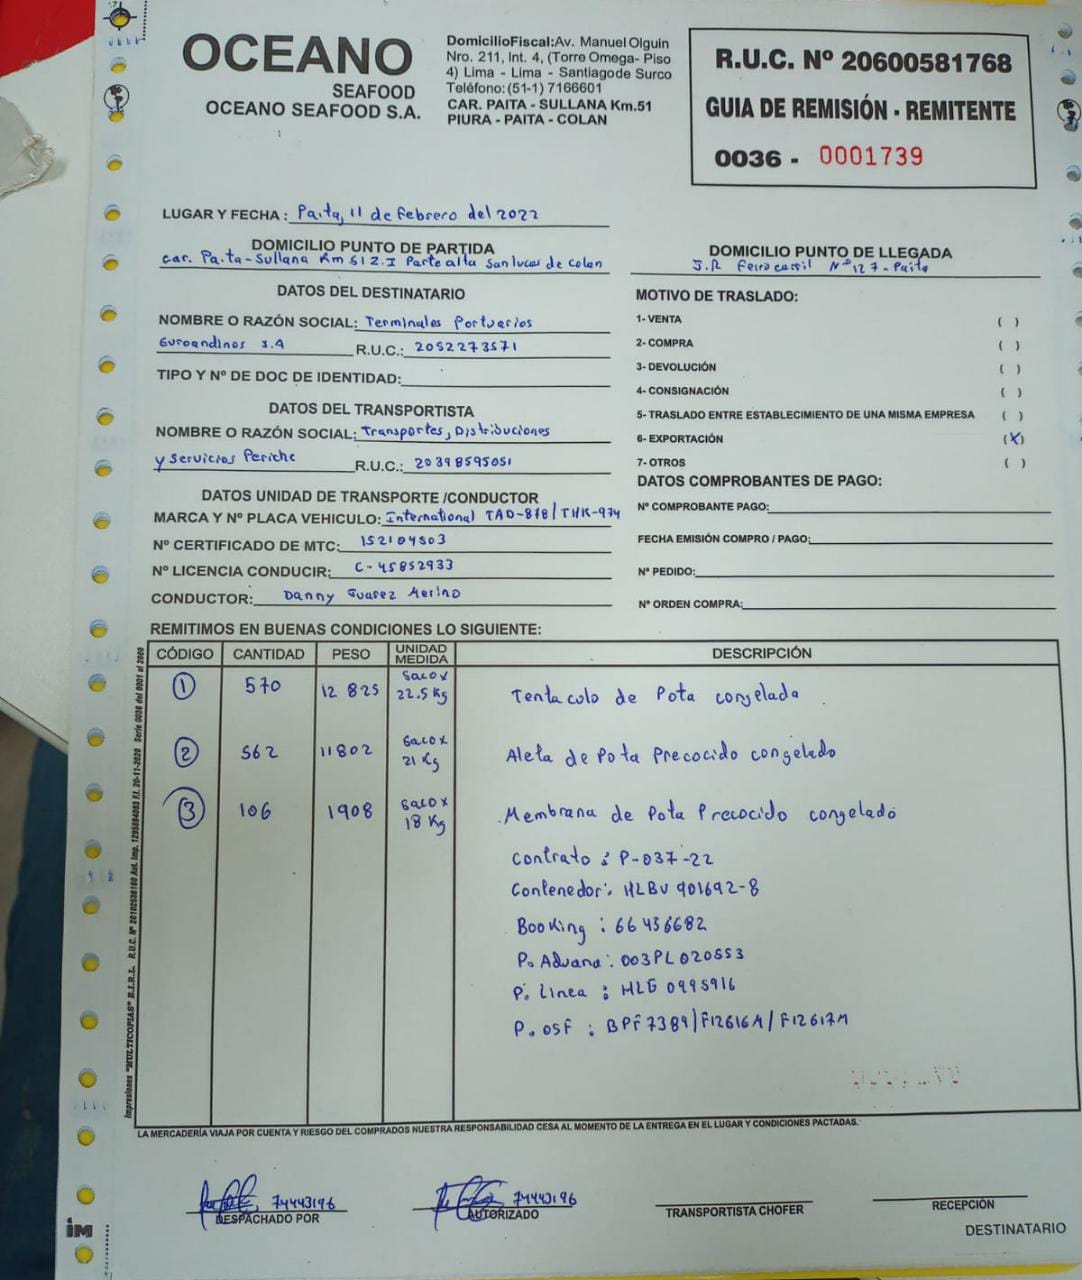 OCEANO
SEAFOOD
OCEANO SEAFOOD S.A.
DomicilioFiscal:Av. Manuel Olguin
Nro. 211, Int. 4, (Torre Omega- Piso
4) Lima - Lima - Santiagode Surco
Teléfono:(51-1) 7166601
CAR. PAITA - SULLANA Km.51
PIURA - PAITA - COLAN
R.U.C. Nº 20600581768
GUIA DE REMISIÓN - REMITENTE
0036 - 0001739
LUGAR Y FECHA : Paita, 11 de Febrero del 2022
DOMICILIO PUNTO DE PARTIDA
car. Paita-Sullana Km 51 2.I Parte alta San lucas de Colan
DOMICILIO PUNTO DE LLEGADA
J.R Ferrocarril Nº 127-Paita
DATOS DEL DESTINATARIO
NOMBRE O RAZÓN SOCIAL: Terminales Portuarios
Euroandinos S.A R.U.C.: 2052273571
TIPO Y Nº DE DOC DE IDENTIDAD:
DATOS DEL TRANSPORTISTA
NOMBRE O RAZÓN SOCIAL: Transportes, Distribuciones
y Servicios Periche R.U.C.: 20398595051
DATOS UNIDAD DE TRANSPORTE /CONDUCTOR
MARCA Y Nº PLACA VEHICULO: International TAD-878/THK-974
Nº CERTIFICADO DE MTC: 152104503
Nº LICENCIA CONDUCIR: C-45852933
CONDUCTOR: Danny Suarez Merino
MOTIVO DE TRASLADO:
1- VENTA ( )
2- COMPRA ( )
3- DEVOLUCIÓN ( )
4- CONSIGNACIÓN ( )
5- TRASLADO ENTRE ESTABLECIMIENTO DE UNA MISMA EMPRESA ( )
6- EXPORTACIÓN (X)
7- OTROS ( )
DATOS COMPROBANTES DE PAGO:
Nº COMPROBANTE PAGO:
FECHA EMISIÓN COMPRO / PAGO:
Nº PEDIDO:
Nº ORDEN COMPRA:
REMITIMOS EN BUENAS CONDICIONES LO SIGUIENTE:
CÓDIGO CANTIDAD PESO UNIDAD MEDIDA DESCRIPCIÓN
1 570 12 825 Saco x 22.5 Kg Tentaculo de Pota congelada
2 562 11802 Saco x 21 Kg Aleta de Pota Precocido congelado
3 106 1908 Saco x 18 Kg Membrana de Pota Precocido congelado
Contrato : P-037-22
Contenedor: HLBU 901692-8
Booking : 66456682
P. Aduana: 003PL020553
P. Linea : HLG 0995916
P. osf : BPF7389/F12616M/F12617M
LA MERCADERÍA VIAJA POR CUENTA Y RIESGO DEL COMPRADOS NUESTRA RESPONSABILIDAD CESA AL MOMENTO DE LA ENTREGA EN EL LUGAR Y CONDICIONES PACTADAS.
74443196
DESPACHADO POR
74443196
AUTORIZADO
TRANSPORTISTA CHOFER
RECEPCIÓN
DESTINATARIO
iM